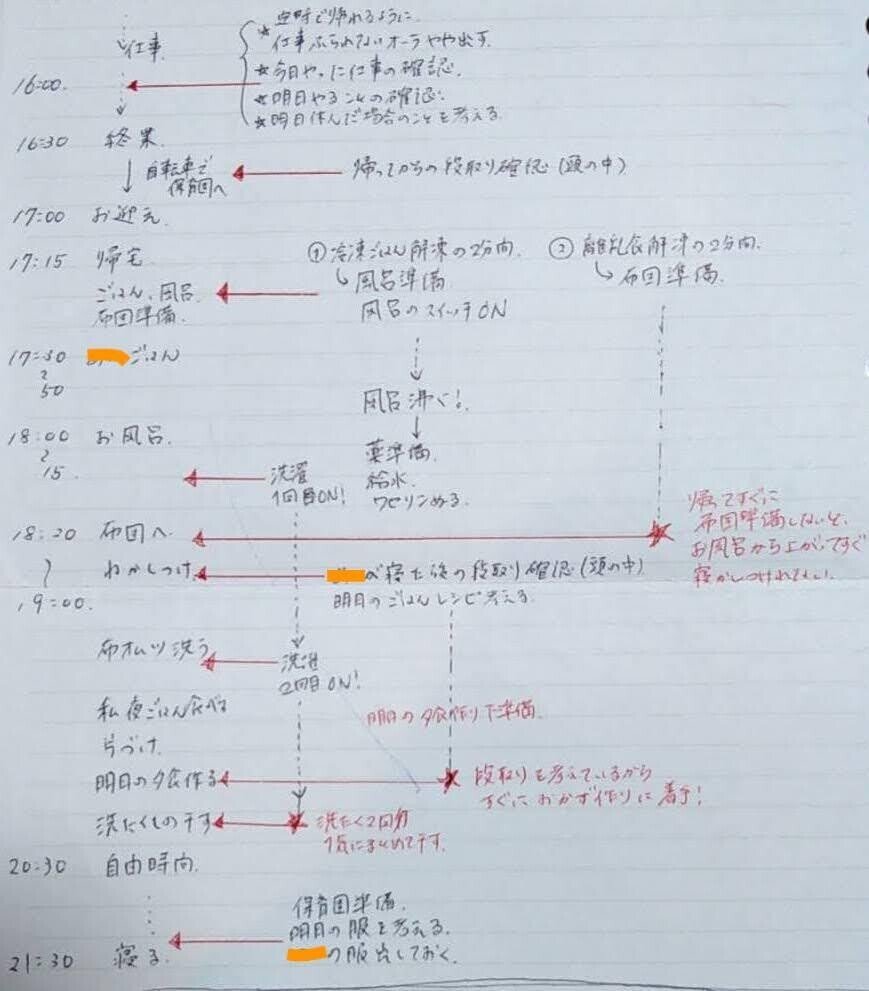 定時で帰れるように
仕事
★仕事ふられないオーラやや出す.
★今日やった仕事の確認.
16:00.
★明日やることの確認.
★明日休んだ場合のことを考える.
16:30 終業.
自転車で
保育園へ
帰ってからの段取り確認(頭の中)
17:00 お迎え.
17:15 帰宅
①冷凍ごはん解凍の2分間.
②離乳食解凍の2分間.
ごはん、風呂
布団準備.
風呂準備
風呂のスイッチON
布団準備.
17:30 ごはん
50
風呂沸く!
18:00 お風呂.
15.
洗濯
1回目ON!
薬準備.
給水.
ワセリンぬる.
帰ってすぐに
布団準備しないと、
お風呂から上がってすぐ
寝かしつけれない.
18:20 布団へ
ねかしつけ.
が寝た後の段取り確認(頭の中)
19:00.
明日のごはんレシピ考える.
布オムツ洗う
洗濯
2回目ON!
私夜ごはん食べる
明日の夕食作り下準備.
片づけ.
明日の夕食作る
段取りを考えているから
すぐにおかず作りに着手!
洗たくもの干す
洗たく2回分
1気にまとめて干す.
20:30 自由時間.
保育園準備.
明日の服を考える.
の服出しておく.
21:30 寝る.